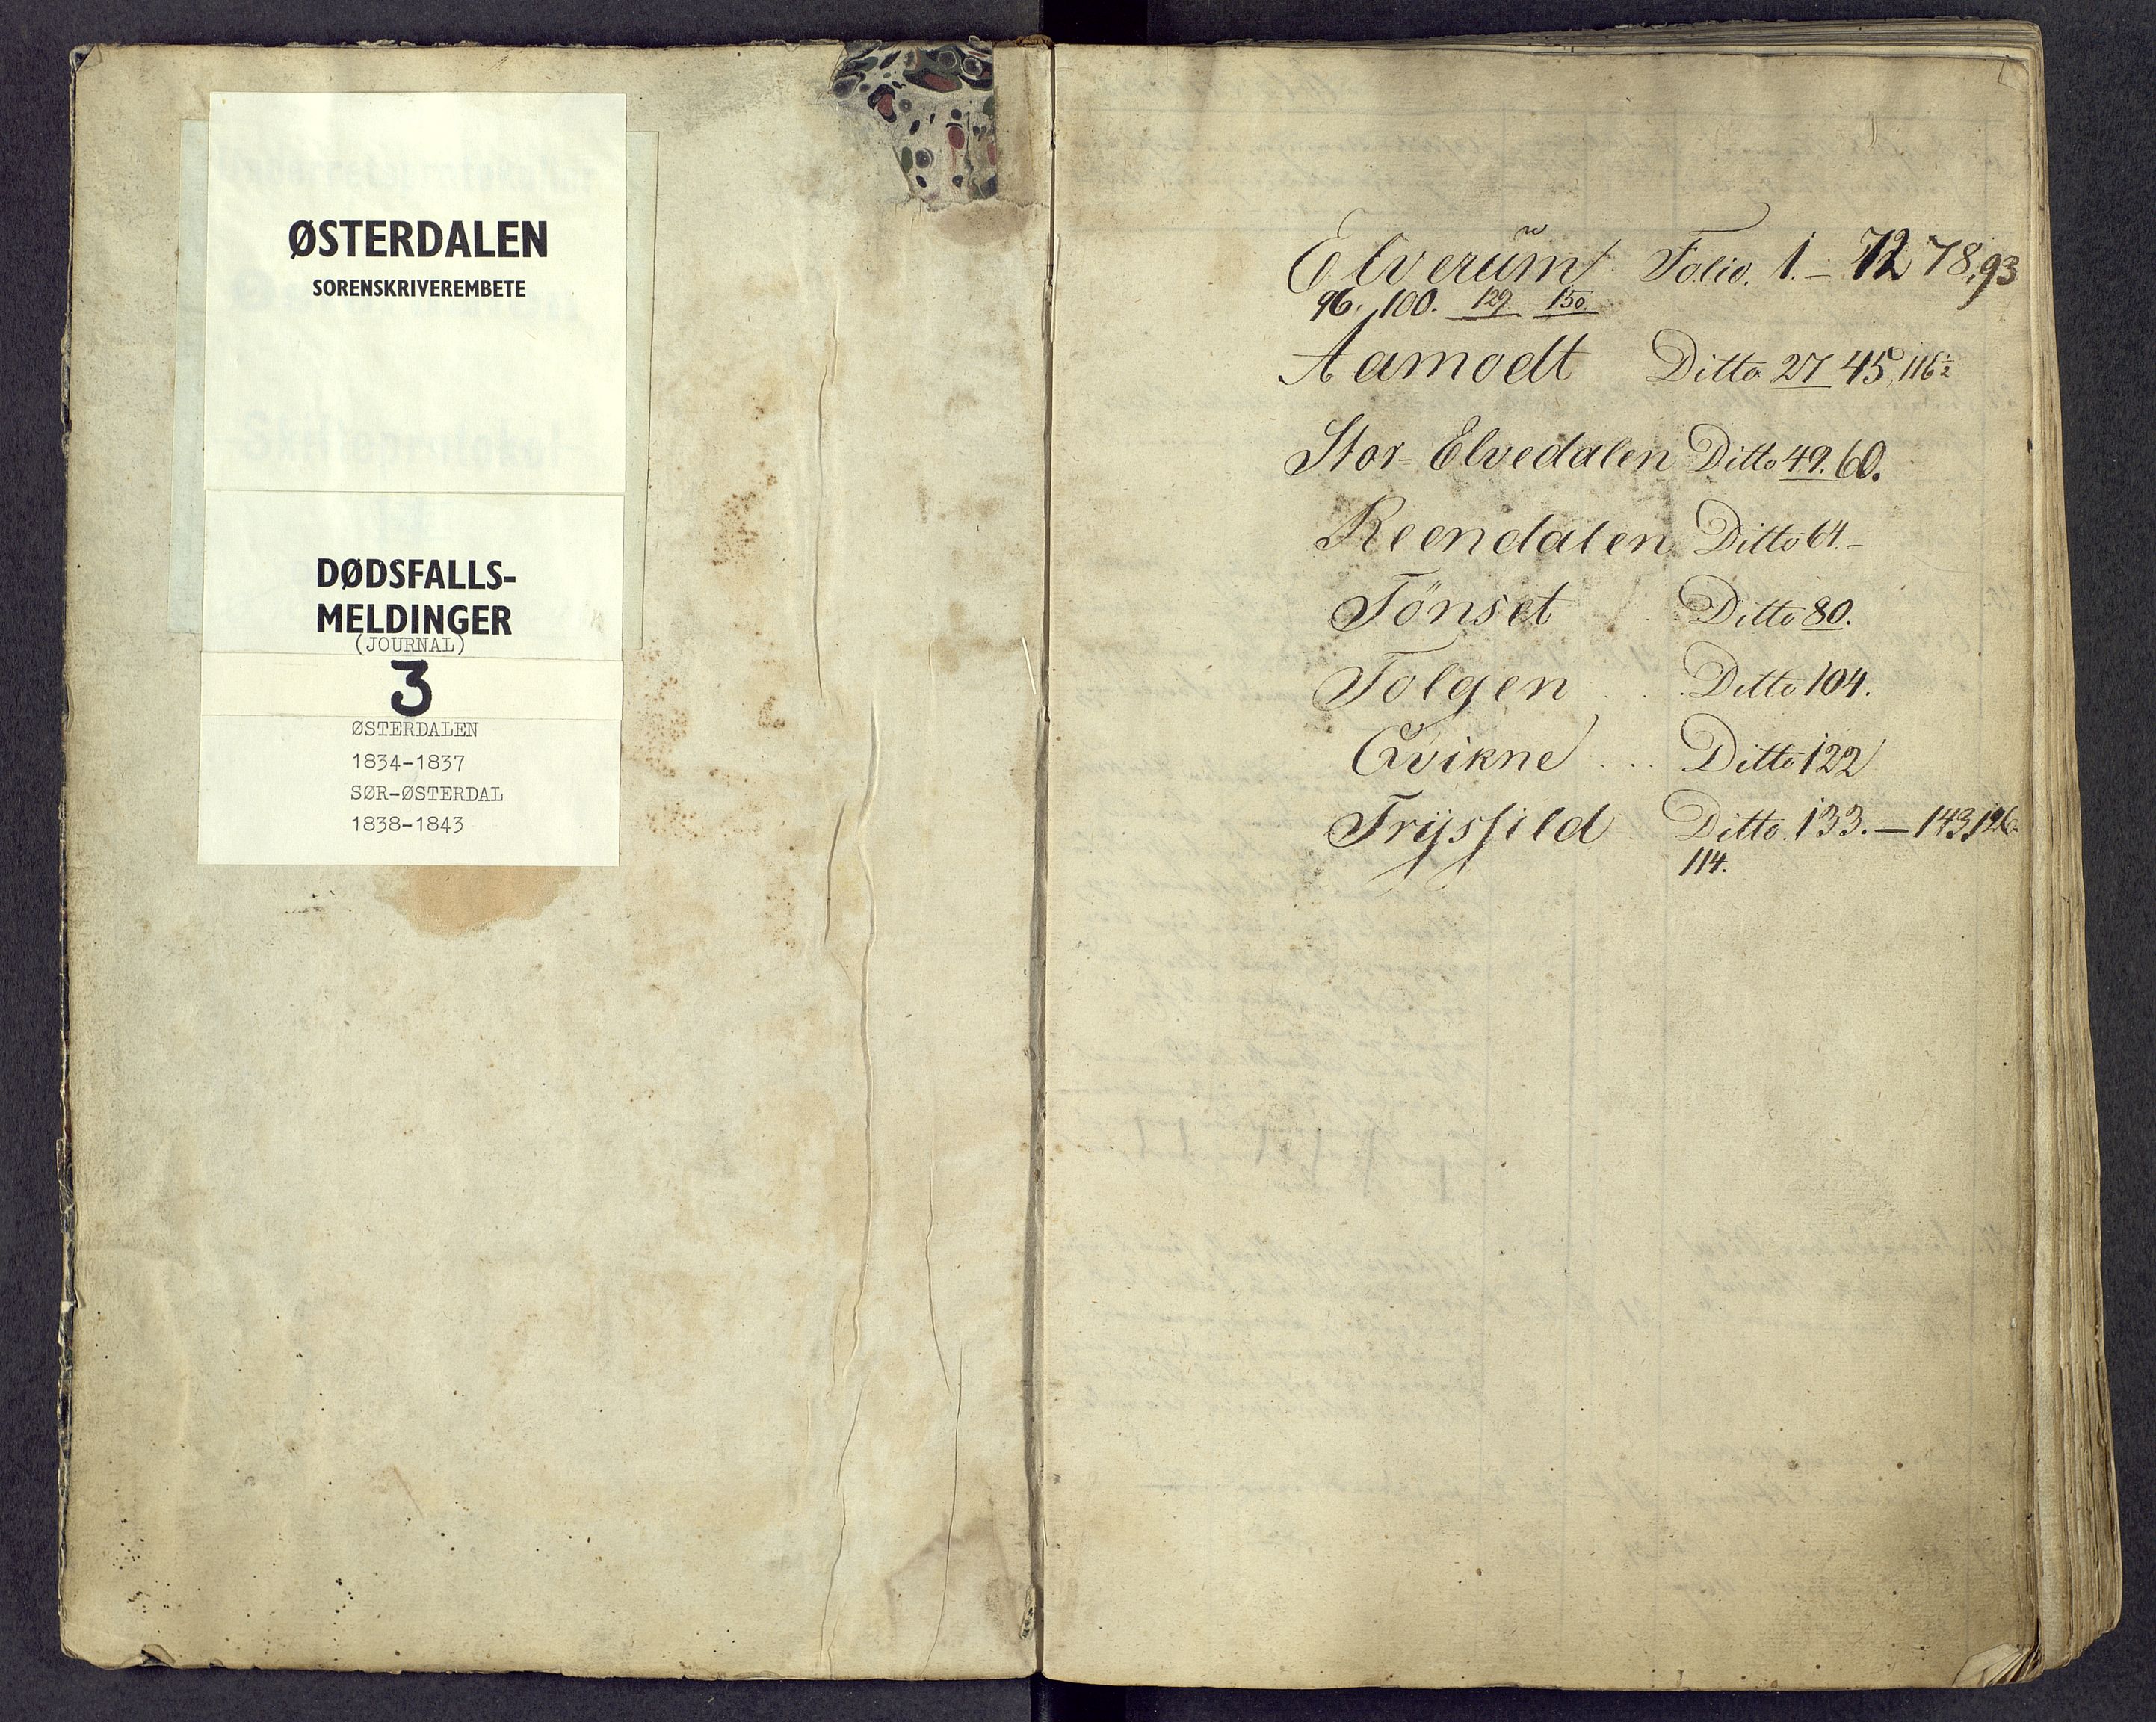 ØSTERDALEN
SORENSKRIVEREMBETE
DØDSFALLS-
MELDINGER
(JOURNAL)
3
ØSTERDALEN
1834-1837
SØR-ØSTERDAL
1838-1843
Elverum Folio. 1. - 72 78, 93
96. 100. 129 150.
Aamodt Ditto 27 45, 116½
Stor-Elvedalen Ditto 49. 60.
Reendalen Ditto 64.-
Tönset Ditto 80.
Tolgen . . . Ditto 104.
Qvikne . . . Ditto 122
Trysfild Ditto. 133. - 143, 126.
114.